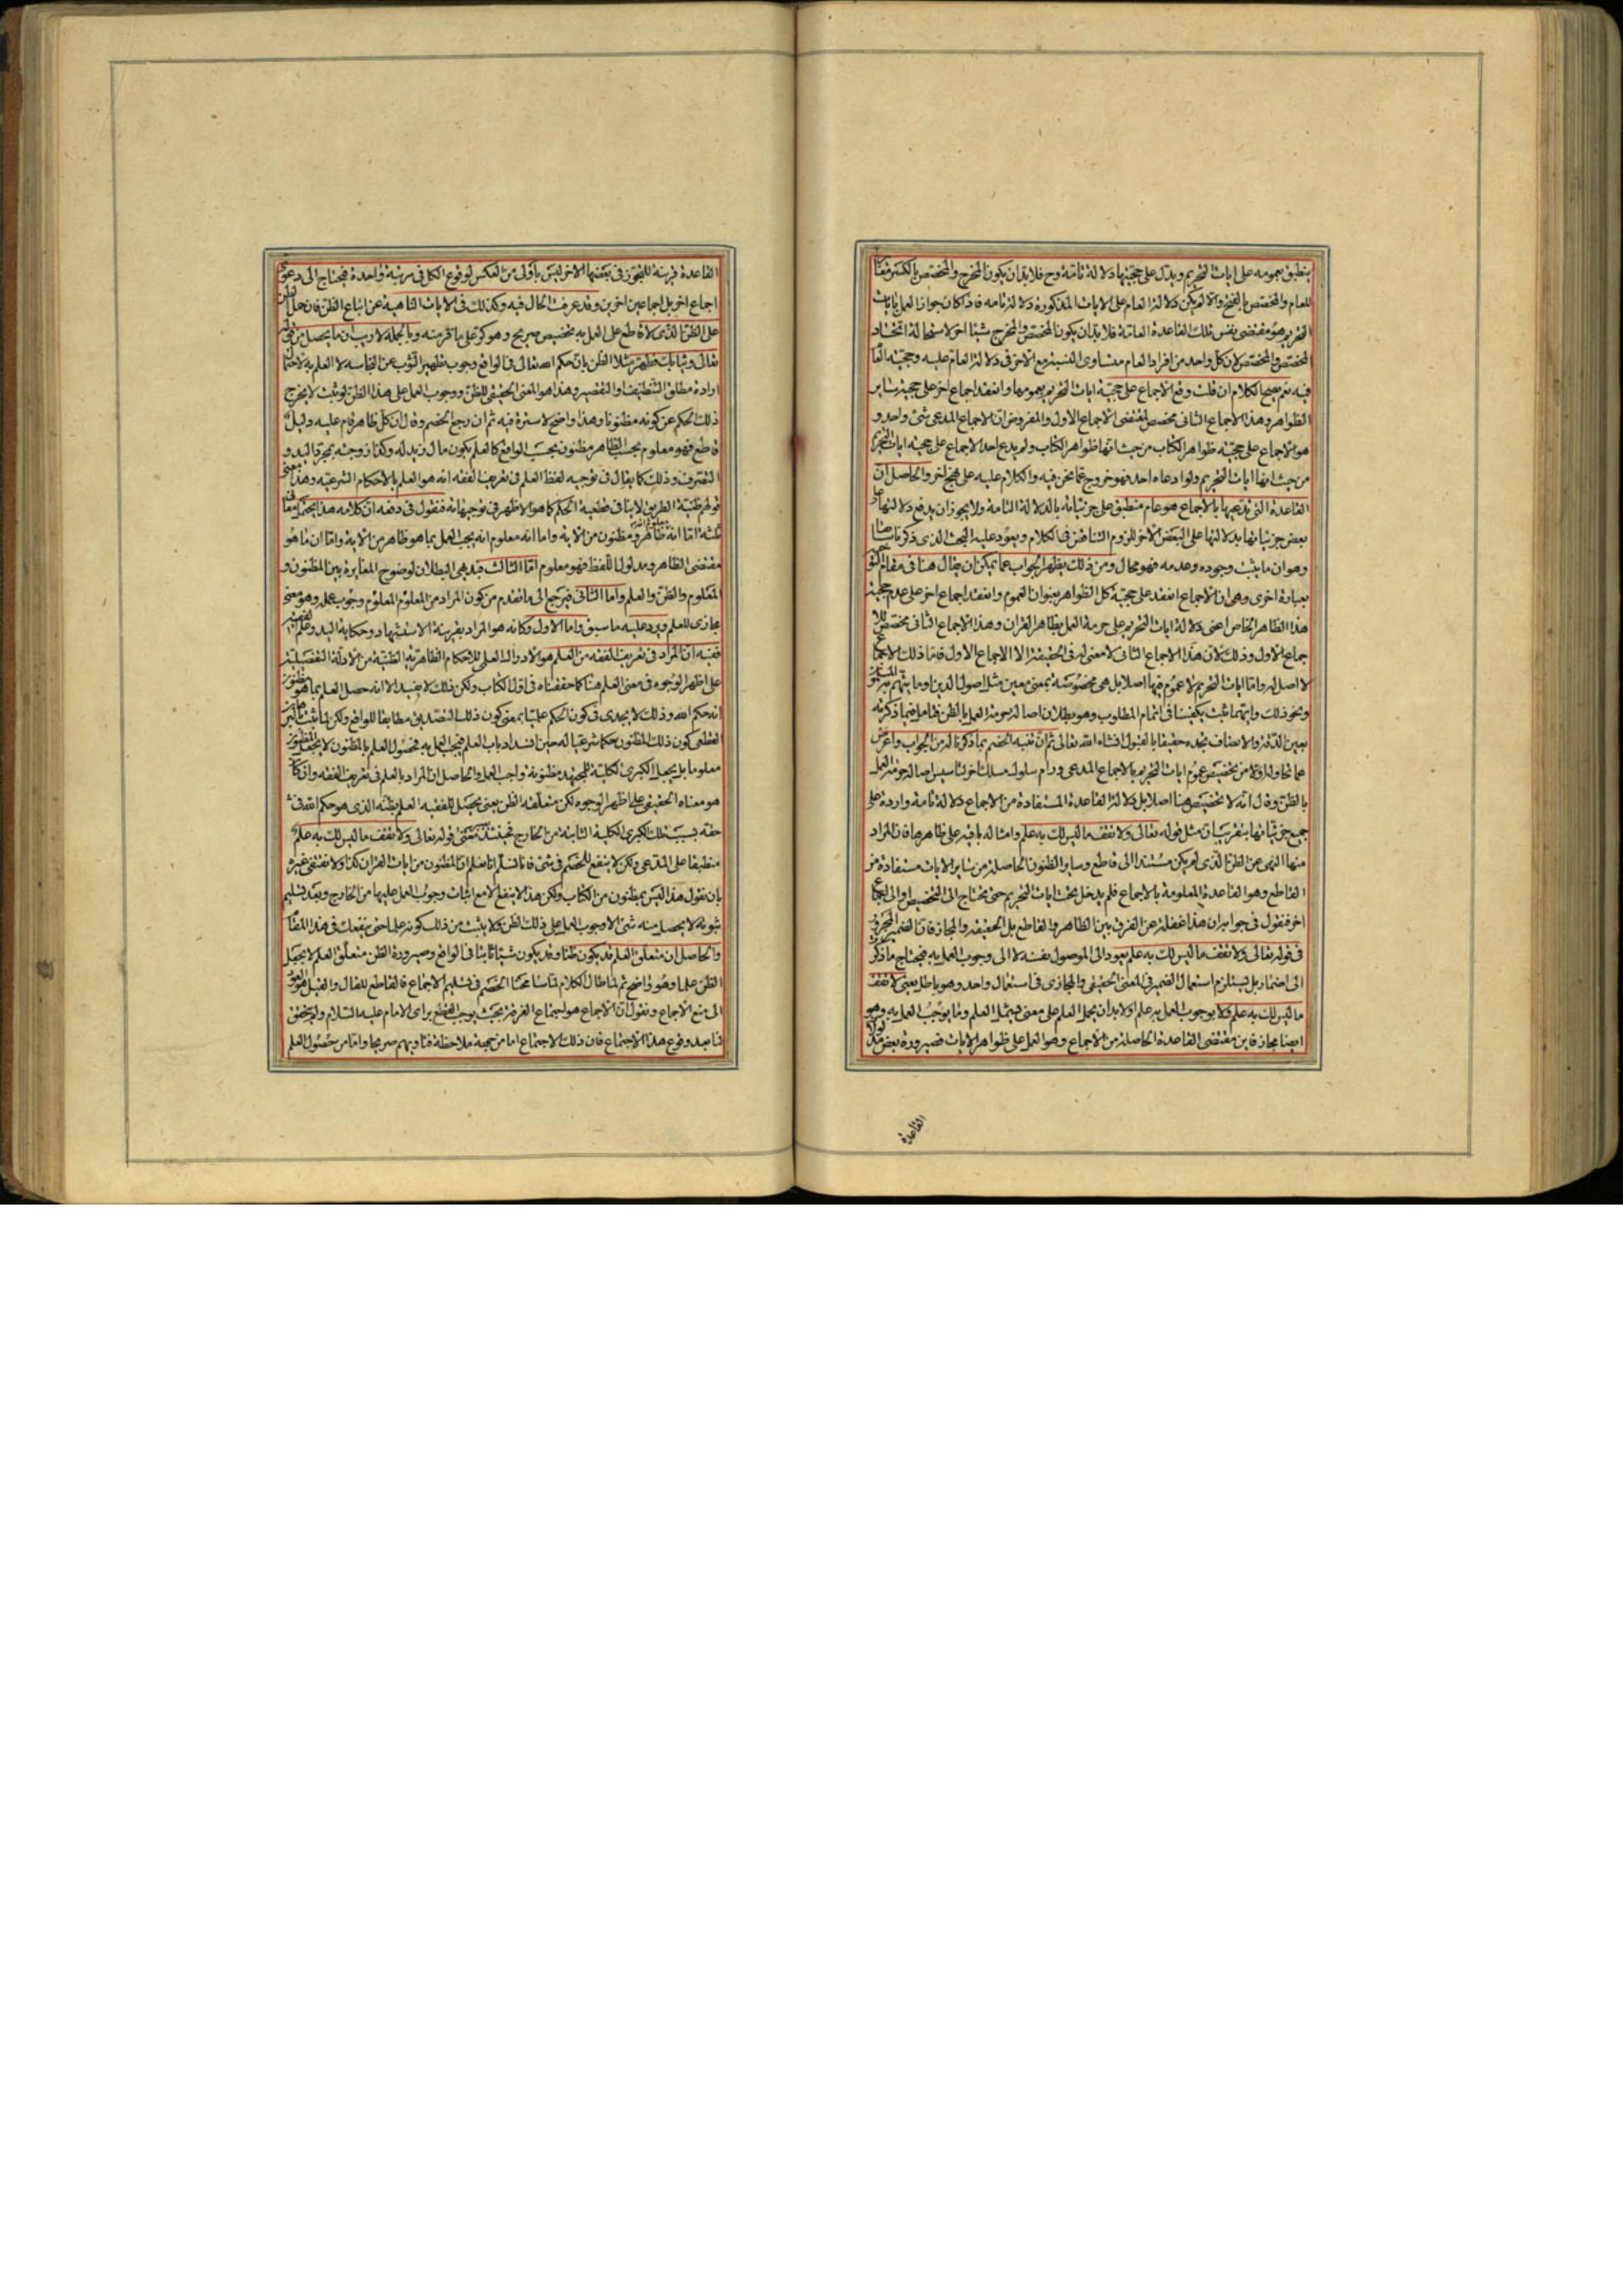 ينطبق بعمومه على ايات التحريم ويدل على حجيتها دلالة تامة وح فلا بد ان يكون المخرج والمخصص بالكسر مقابلا
للعام والمخصص بالفتح والا لم يكن دلالة العام على الايات المذكورة دلالة تامه فاذا كان جواز العمل بايات
التحريم هو مقتضى نفس تلك القاعدة العامة فلا بد ان يكون المخصص والمخرج شيئا اخر لاستحالة اتحاد
المخصص والمخصص لان كل واحد من افراد العام متساوى النسبة مع الاخر فى دلالة العام عليه وحجية العام
فيه نعم يصح الكلام ان قلت وقع الاجماع على حجية ايات التحريم بعمومها وانعقد اجماع اخر على حجية ساير
الظواهر وهذا الاجماع الثانى مخصص لمقتضى الاجماع الاول والمفروض ان الاجماع المدعى شئ واحد و
هو الاجماع على حجية ظواهر الكتاب من حيث انها ظواهر الكتاب ولم يدع احد الاجماع على حجية ايات التحريم
من حيث انها ايات التحريم ولو ادعاه احد فهو خروج عما نحن فيه والكلام عليه على نهج اخر والحاصل ان
القاعدة التى تدعيها بالاجماع هو عام منطبق على جزئياته بالدلالة التامة ولا يجوز ان يدفع دلالتها على
بعض جزئياتها بدلالتها على البعض الاخر للزوم التناقض فى الكلام ويعود عليه البحث الذى ذكرنا سابقا
وهو ان ما يثبت وجوده وعدمه فهو محال ومن ذلك يظهر الجواب عما يمكن ان يقال هنا فى مقام
بعبارة اخرى وهى ان الاجماع انعقد على حجية كل الظواهر بعنوان العموم وانعقد اجماع اخر على عدم حجية
هذا الظاهر الخاص اعنى دلالة ايات التحريم على حرمة العمل بظاهر القران وهذا الاجماع الثانى مخصص للا
جماع الاول وذلك لان هذا الاجماع الثانى لا معنى له فى الحقيقة الا الاجماع الاول فاما ذلك الاجماع
لا اصل له واما ايات التحريم لا عموم فيها اصلا بل هى مخصوصة بمعنى معين مثل اصول الدين وما يتهم به
ونحو ذلك وايتهما ثبت يكفينا فى اتمام المطلوب وهو بطلان اصالة حرمة العمل بالظن فتامل فيما ذكرته
بعين الدقة والانصاف تجده حقيقا بالقبول انشاء الله تعالى ثم ان تنبه الخصم بما ذكرنا له من الجواب واعرض
عما حاوله اولا من تخصيص عموم ايات التحريم بالاجماع المدعى ورام سلوك مسلك اخر لتاسيس اصالة حرمة العمل
بالظن وقال انه لا تخصيص هنا اصلا بل دلالة القاعدة المستفادة من الاجماع دلالة تامة واردة على
جميع جزئياتها بتقريب ان مثل قوله تعالى ولا تقف ما ليس لك به علم وامثاله باقية على ظاهرها فان المراد
منها النهى عن الظن الذى لم يكن مستندا الى قاطع وساير الظنون الحاصلة من ساير الايات مستفادة من
القاطع وهو القاعدة المعلومة بالاجماع فلم يدخل تحت ايات التحريم حتى يحتاج الى التخصيص والى اجماع
اخر فنقول فى جوابه ان هذا غفلة عن الفرق بين الظاهر والقاطع بل الحقيقة والمجاز فان الضمير المجرور
فى قوله تعالى ولا تقف ما ليس لك به علم يعود الى الموصول نفسه لا الى وجوب العمل به فيحتاج ما ذكره
الى اضمار بل يستلزم استعمال الضمير فى المعنى الحقيقى والمجازى فى استعمال واحد وهو باطل يعنى لا تقف
ما ليس لك به علم ولا بوجوب العمل به علم او لا بد ان يحمل العلم على معنى يشمل العلم وما يوجب العمل به وهو
ايضا مجاز فاين مقتضى القاعدة الحاصلة من الاجماع وهو العمل على ظواهر الايات فصيرورة بعض
القاعدة
القاعدة قرينة للتجوز فى بعضها الاخر ليس باولى من العكس لوقوع الكل فى مرتبة واحدة فيحتاج الى دعوى
اجماع اخر بل اجماعين اخرين وقد عرفت الحال فيه وكذلك فى الايات الناهية عن اتباع الظن فان حمل الظن
على الظن الذى لا قاطع على العمل به تخصيص صريح وهو كر على ما فر منه وبالجمله لا ريب ان ما يحصل من قوله
تعالى وثيابك فطهر مثلا الظن بان حكم الله تعالى فى الواقع وجوب تطهير الثوب عن النجاسه لا العلم به لاحتمال
ارادة مطلق التنظيف او التقصير وهذا هو المعنى الحقيقى للظن ووجوب العمل على هذا الظن لو ثبت لا يخرج
ذلك الحكم عن كونه مظنونا وهذا واضح لا سترة فيه ثم ان رجع الخصم وقال ان كل ظاهر قام عليه دليل
قاطع فهو معلوم بحسب الظاهر مظنون بحسب الواقع كالعلم بكون مال زيد له وكذا زوجته بمجرد اليد و
التصرف وذلك كما يقال فى توجيه لفظ العلم فى تعريف الفقه انه هو العلم بالاحكام الشرعيه وهذا معنى
قولهم ظنية الطريق لا ينافى قطعية الحكم كما هو الاظهر فى توجيهاته فنقول فى دفعه ان كلامه هذا يحتمل معانى
ثلثه اما انه معلوم انه ظاهر ومظنون من الاية واما انه معلوم انه يجب العمل بما هو ظاهر من الاية واما ان ما هو
مقتضى الظاهر ومدلول اللفظ فهو معلوم اما الثالث فبديهى البطلان لوضوح المغايرة بين المظنون و
المعلوم والظن والعلم واما الثانى فيرجع الى ما تقدم من كون المراد من المعلوم المعلوم وجوب عمله وهو معنى
مجازى للعلم ويرد عليه ما سبق واما الاول وكانه هو المراد بقرينة الاستشهاد وحكاية اليد وعلم الفقه
ففيه ان المراد فى تعريف الفقه من العلم هو الادراك العلمى للاحكام الظاهرية الظنية من الادلة التفصيلية
على اظهر الوجوه فى معنى العلم هنا كما حققناه فى اول الكتاب ولكن ذلك لا يفيد الا انه حصل العلم بما هو مظنون
انه حكم الله وذلك لا يجدى فى كون الحكم علميا بمعنى كون ذلك التصديق مطابقا للواقع ولكن لما ثبت
القطعى كون ذلك المظنون حكما شرعيا له حين انسداد باب العلم فيجب العمل به فحصول العلم بالمظنون لا يجعل المظنون
معلوما بل يجعل الكبرى الكلية للمجتهد مظنونة واجب العمل والحاصل ان المراد بالعلم فى تعريف الفقه وان كان
هو معناه الحقيقى على اظهر الوجوه لكن متعلقه الظن يعنى يحصل للفقيه العلم بظنه الذى هو حكم الله فى
حقه بسبب تلك الكبرى الكلية الثابتة من الخارج فحينئذ معنى قوله تعالى ولا تقف ما ليس لك به علم
منطبقا على المدعى ولكن لا ينفع للخصم فى شئ فانا نسلم انا نعلم ان المظنون من ايات القران كذا ولا نقتفى غيره
بان نقول هذا ليس بمظنون من الكتاب ولكن هذا لا ينفع الا مع اثبات وجوب العمل عليها من الخارج وبعد تسليم
ثبوته لا يحصل منه شئ الا وجوب العمل على ذلك الظن ولا يثبت من ذلك كونه علما حتى ينفعك فى هذا المقام
والحاصل ان متعلق العلم قد يكون ظنا وقد يكون شيئا ثابتا فى الواقع وصيرورة الظن متعلق العلم لا يجعل
الظن علما وهو واضح ثم لما طال الكلام تماشا مع الخصم فى تسليم الاجماع فالقاطع للقال والقيل هو العود
الى منع الاجماع ونقول ان الاجماع هو اجتماع الفرقة بحيث يوجب القطع براى الامام عليه السلام ولم يتحقق
لنا بعد وقوع هذا الاجتماع فان ذلك الاجتماع اما من جهة ملاحظة فتاويهم صريحا واما من حصول العلم